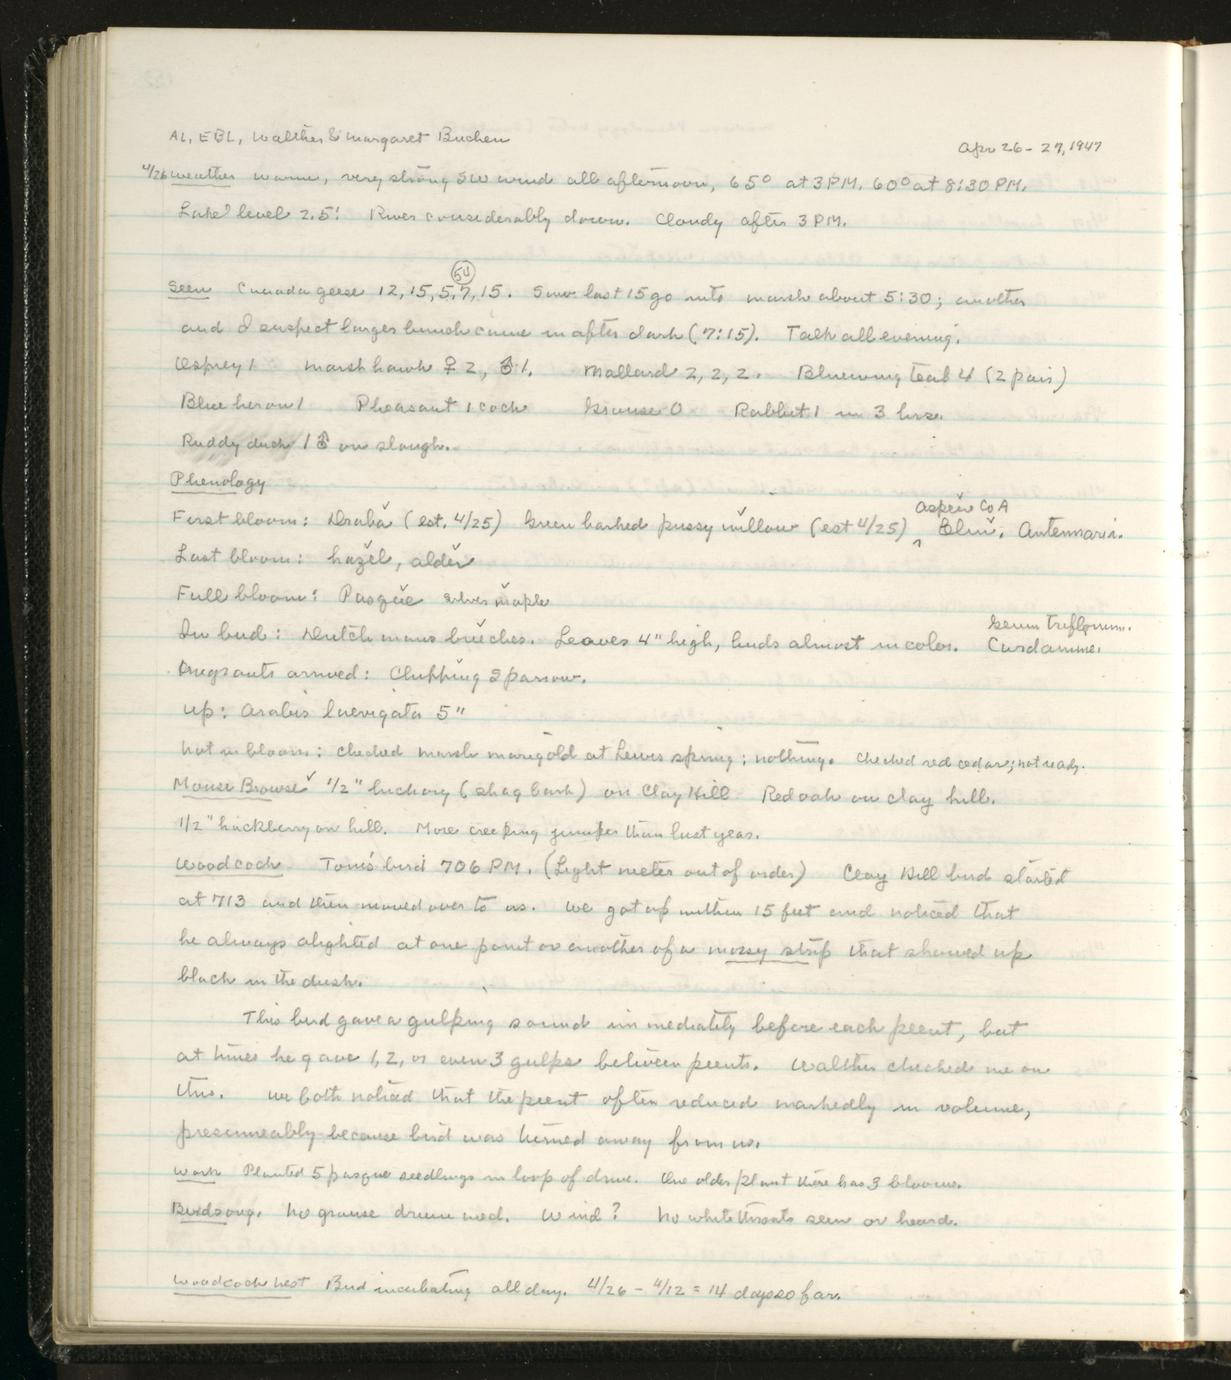 AL, EBL, Walther & Margaret Buchen
Apr 26-27, 1947
4/26 Weather warm, very strong SW wind all afternoon, 65° at 3 PM. 60° at 8:30 PM.
Lake level 2.5! River considerably down. Cloudy after 3 PM.
54
Seen Canada geese 12, 15, 5, 7, 15. Saw last 15 go into marsh about 5:30; another
and I suspect larger bunch came in after dark (7:15). Talk all evening.
Osprey 1 Marsh hawk ♀ 2, ♂ 1. Mallard 2, 2, 2. Bluewing teal 4 (2 pair)
Blue heron 1 Pheasant 1 cock Grouse 0 Rabbit 1 in 3 hrs.
Ruddy duck 1 ♂ on slough.
Phenology
Aspen Co A
First bloom: Draba (est. 4/25) Green barked pussy willow (est 4/25) ^ Elm. Antennaria.
Last bloom: hazel, alder
Full bloom: Pasque silver maple
Geum triflorum.
In bud: Dutchmans breeches. Leaves 4" high, buds almost in color. Cardamine.
Migrants arrived: Chipping Sparrow.
Up: Arabis laevigata 5"
Not in bloom: checked marsh marigold at Lewis spring; nothing. Checked red cedar; not ready.
Mouse Browse 1/2" hickory (shag bark) on Clay Hill Red oak on clay hill.
1/2" hackberry on hill. More creeping juniper than last year.
Woodcock. Tom's bird 706 PM. (Light meter out of order) Clay Hill bird started
at 713 and then moved over to us. We got up within 15 feet and noticed that
he always alighted at one point or another of a mossy strip that showed up
black in the dusk.
This bird gave a gulping sound immediately before each peent, but
at times he gave 1, 2, or even 3 gulps between peents. Walther checked me on
this. We both noticed that the peent often reduced markedly in volume,
presumeably because bird was turned away from us.
Work Planted 5 pasque seedlings in loop of drive. One older plant there has 3 blooms.
Birdsong. No grouse drummed. Wind? No whitethroats seen or heard.
Woodcock nest Bird incubating all day. 4/26 - 4/12 = 14 days so far.